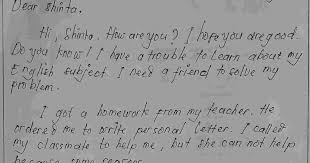 Dear Shinta.
Hi, Shinta. How are you? I hope you are good.
Do you know! I have a trouble to learn about my
English subject. I need a friend to solve my
problem.
I got a homework from my teacher. He
ordered me to write personal letter. I called
my classmate to help me, but she can not help
because some reason